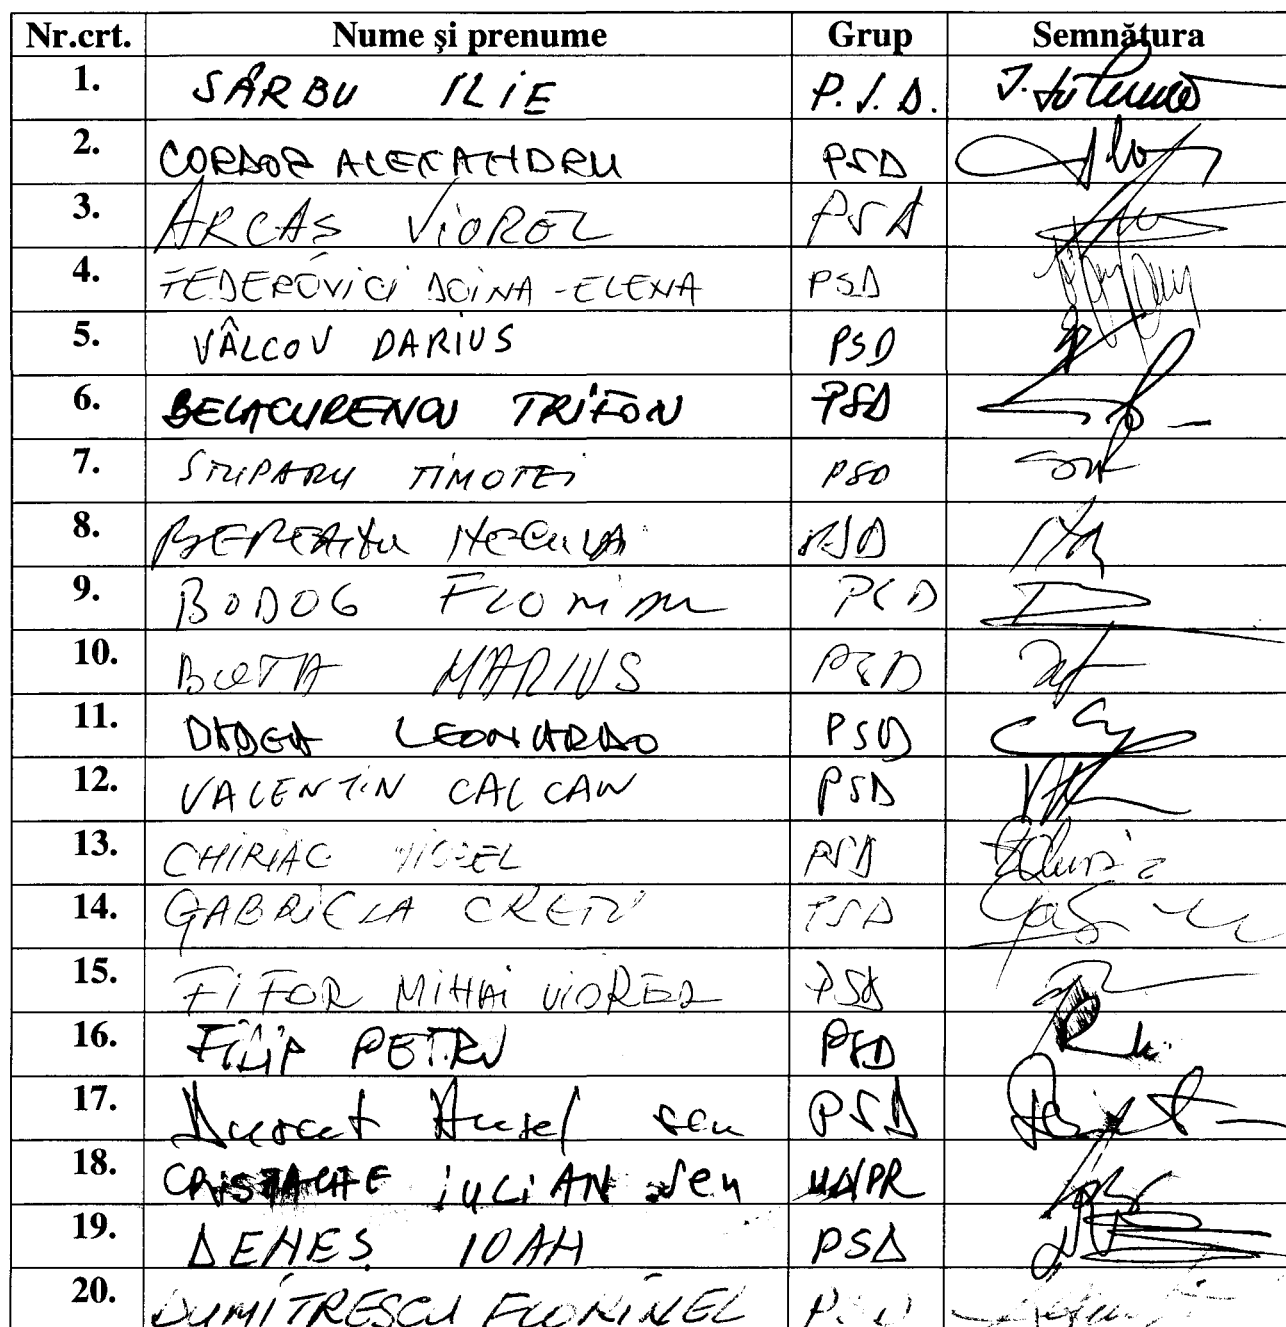 Nr.crt. Nume și prenume Grup Semnătura
1. SÂRBU ILIE P.S.D.
2. CORDOȘ ALEXANDRU PSD
3. ARCAȘ VIOREL PSD
4. FEDEROVICI DOINA-ELENA PSD
5. VÂLCOV DARIUS PSD
6. BELACURENCU TRIFON PSD
7. STUPARU TIMOTEI PSD
8. NECULA PSD
9. BODOG FLORIAN PSD
10. BOTA MARIUS PSD
11. BADEA LEONARDO PSD
12. VALENTIN CALCAN PSD
13. CHIRIAC VIOREL PSD
14. GABRIELA CREȚU PSD
15. FIFOR MIHAI VIOREL PSD
16. FILIP PETRU PSD
17. PSD
18. CRISTACHE IULIAN sen UNPR
19. DENEȘ IOAN PSD
20. DUMITRESCU FLORINEL PSD